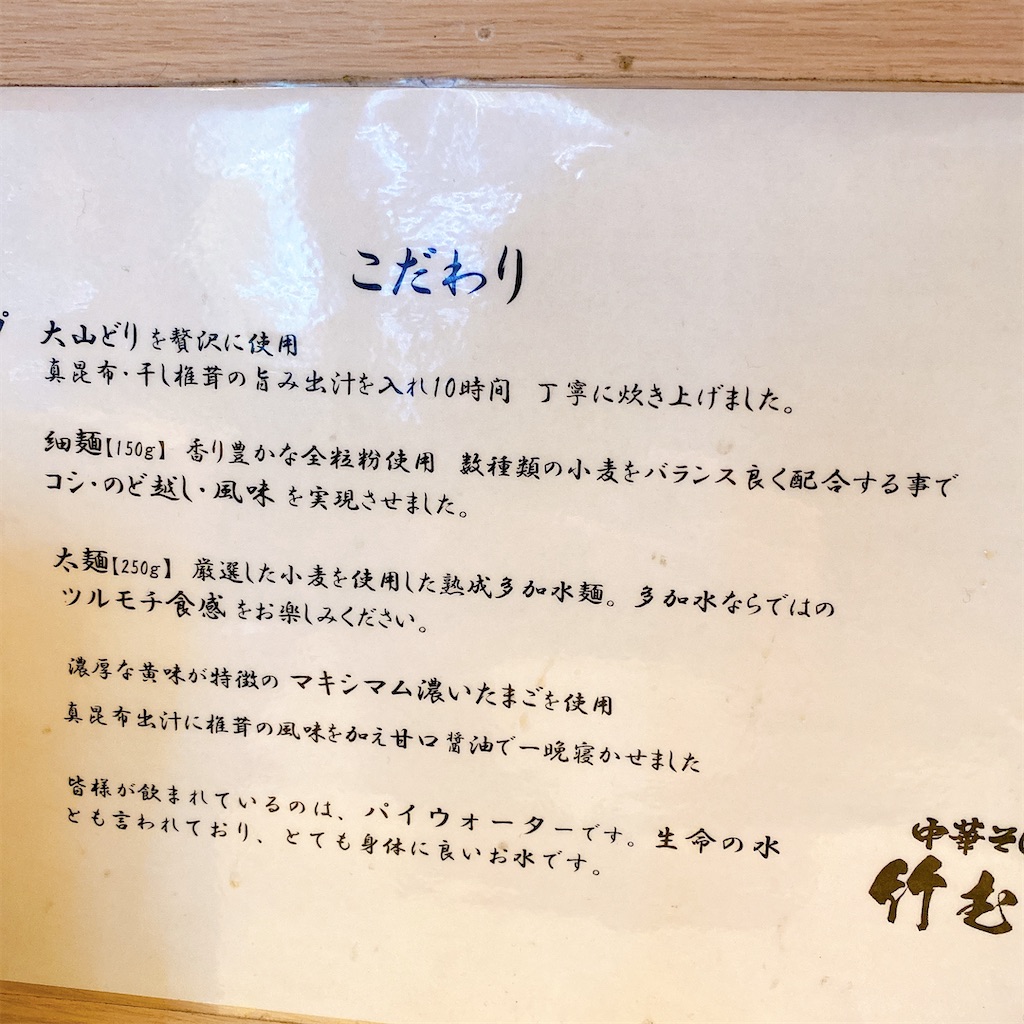 こだわり
プ
大山どりを贅沢に使用
真昆布・干し椎茸の旨み出汁を入れ10時間 丁寧に炊き上げました。
細麺【150g】 香り豊かな全粒粉使用 数種類の小麦をバランス良く配合する事で
コシ・のど越し・風味を実現させました。
太麺【250g】 厳選した小麦を使用した熟成多加水麺。多加水ならではの
ツルモチ食感をお楽しみください。
濃厚な黄味が特徴のマキシマム濃いたまごを使用
真昆布出汁に椎茸の風味を加え甘口醤油で一晩寝かせました
皆様が飲まれているのは、パイウォーターです。生命の水
とも言われており、とても身体に良いお水です。
中華そ
竹む